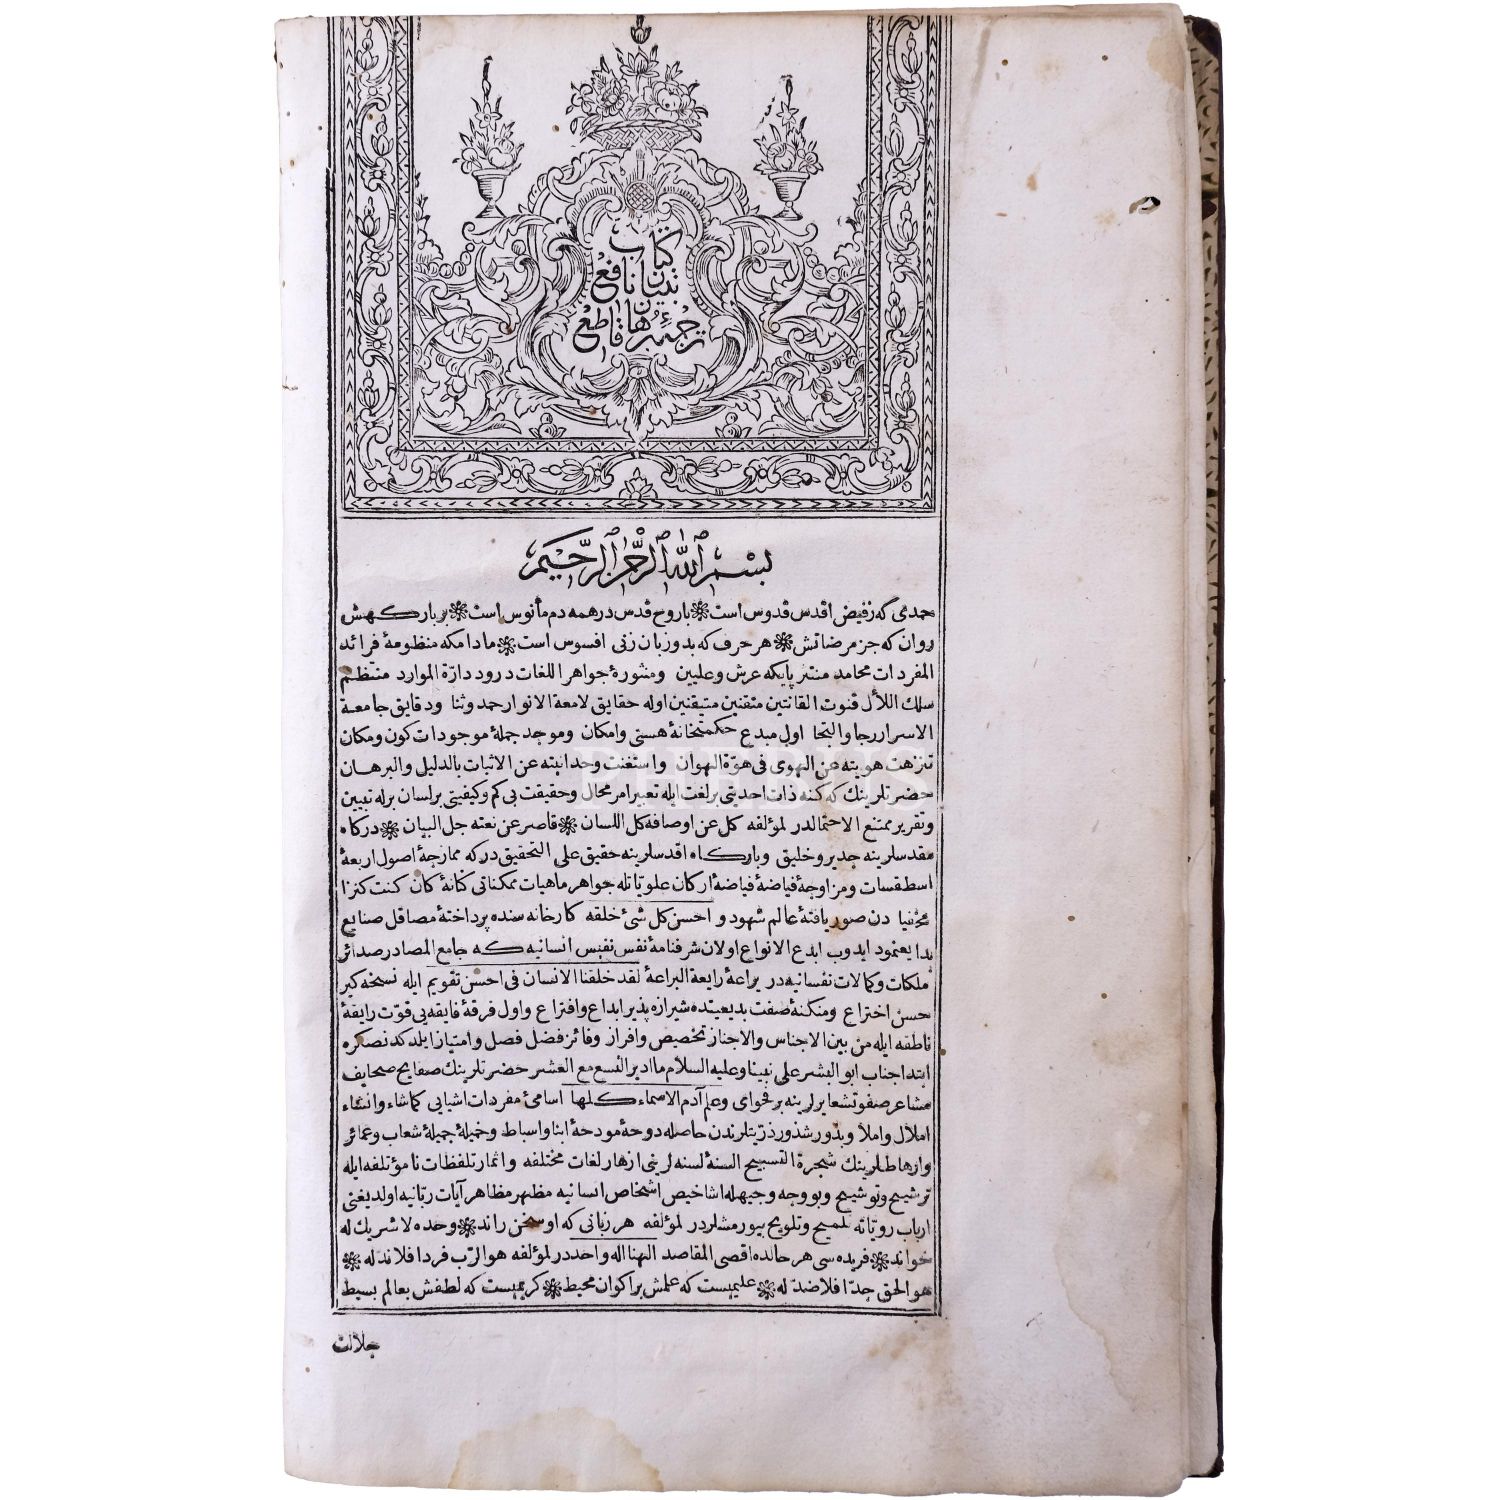 كتاب
تبيان نافع
ترجمهٔ برهان قاطع
بسم الله الرحمن الرحيم
حمدى كه زفيض اقدس قدوس است ❋ باروح قدس درهمه دم مأنوس است ❋ بربارگهش
روان كه جز مرضاتش ❋ هر حرف كه بدوزبان زنى افسوس است ❋ مادامكه منظومهٔ فرائد
المفردات محامد منتر پايكه عرش وعليين ومنثورهٔ جواهر اللغات درود دارة الموارد منتظم
سلك اللأل قنوت القانتين متقنين متيقنين اوله حقايق لامعة الانوار حمد وثنا ودقايق جامعة
الاسرار رجا والتجا اول مبدع حكمتخانهٔ هستى وامكان وموجد جملهٔ موجودات كون ومكان
تنزهت هويته عن الهوى فى هوّة الهوان واستغنت وحدانيته عن الاثبات بالدليل والبرهان
حضرتلرينك كه كنه ذات احديتى برلغت ايله تعبير امر محال وحقيقت بى كم وكيفيتى برلسان برله تبيين
وتقرير ممتنع الاحتمالدر لمؤلفه كل عن اوصافه كل اللسان ❋ قاصر عن نعته جل البيان ❋ دركاه
مقدسلرينه جدير وخليق وباركاه اقدسلرينه حقيق على التحقيق دركه ممازجهٔ اصول اربعهٔ
اسطقسات ومزاوجهٔ فياضهٔ فياضهٔ اركان علوياتله جواهر ماهيات ممكناتى كانهٔ كان كنت كنزا
مخفيا دن صور يافتهٔ عالم شهود و احسن كل شئ خلقه كارخانه سنده پرداختهٔ مصاقل صنايع
بدايعنمود ايدوب ابدع الانواع اولان شرفنامهٔ نفس نفيس انسانيه كه جامع المصادر صدائر
ملكات وكمالات نفسانيه در يراعهٔ رايعة البراعهٔ لقد خلقنا الانسان فى احسن تقويم ايله نسخه كير
حسن اختراع ومنكنهٔ صفت بديعيتده شيرازه پذير ابداع وافتراع واول فرقهٔ فايقه يى قوّت رايقهٔ
ناطقه ايله من بين الاجناس والاجناز تخصيص وافراز وفائز فضل فصل وامتياز ايلدكدنصكره
ابتدا جناب ابو البشر على نبينا وعليه السلام ما ادبر النسع مع العشر حضرتلرينك صفايح صحايف
مشاعر صفوتشعايرلرينه برفحواى وعلم آدم الاسماء كلها اسامئ مفردات اشيايى كماشاء وانشاء
املال واملا وبذور شذور ذرّيتلرندن حاصله دوحهٔ مودحهٔ ابنا واسباط وخميلهٔ جميلهٔ شعاب وعمائر
وارهاطلرينك شجرة التسبيح السنهٔ لسنه لرينى ازهار لغات مختلفه واثمار تلفظات نامؤتلفه ايله
ترشيح وتوشيح وبووجه وجيهله اشاخيص اشخاص انسانيه مظهر مظاهر آيات ربّانيه اولديغنى
ارباب رويّاته تلميح وتلويح بيورمشلردر لمؤلفه هرزبانى كه اوسخن راند ❋ وحده لا شريك له
خواند ❋ فريده سى هر حالده اقصى المقاصد الهنا اله واحددر لمؤلفه هو الرّب فردا فلا ندّ له ❋
هو الحق جدّا فلا ضدّ له ❋ عليميست كه علمش بر اكوان محيط ❋ كريميست كه لطفش بعالم بسيط
جلالت
PHEBUS